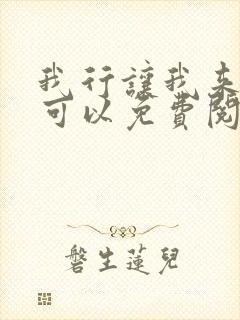 我行讓我來
可以免費閱
磐生蓮兒